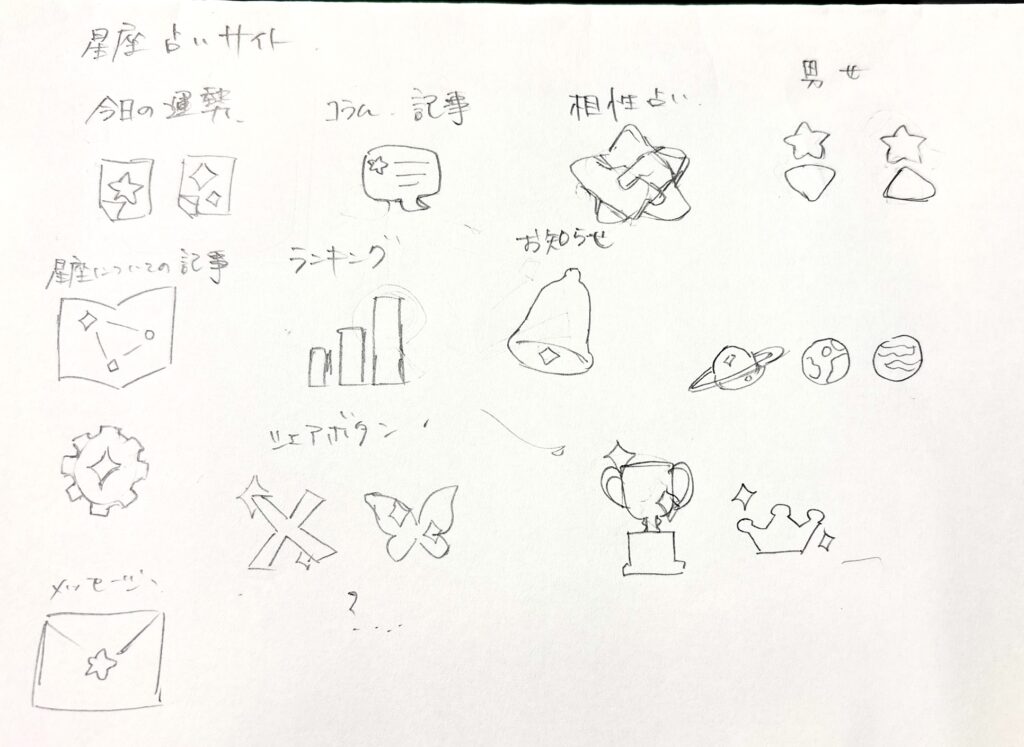 星座占いサイト
今日の運勢
コラム、記事
相性占い
男 女
星座についての記事
ランキング
お知らせ
シェアボタン
メッセージ
?